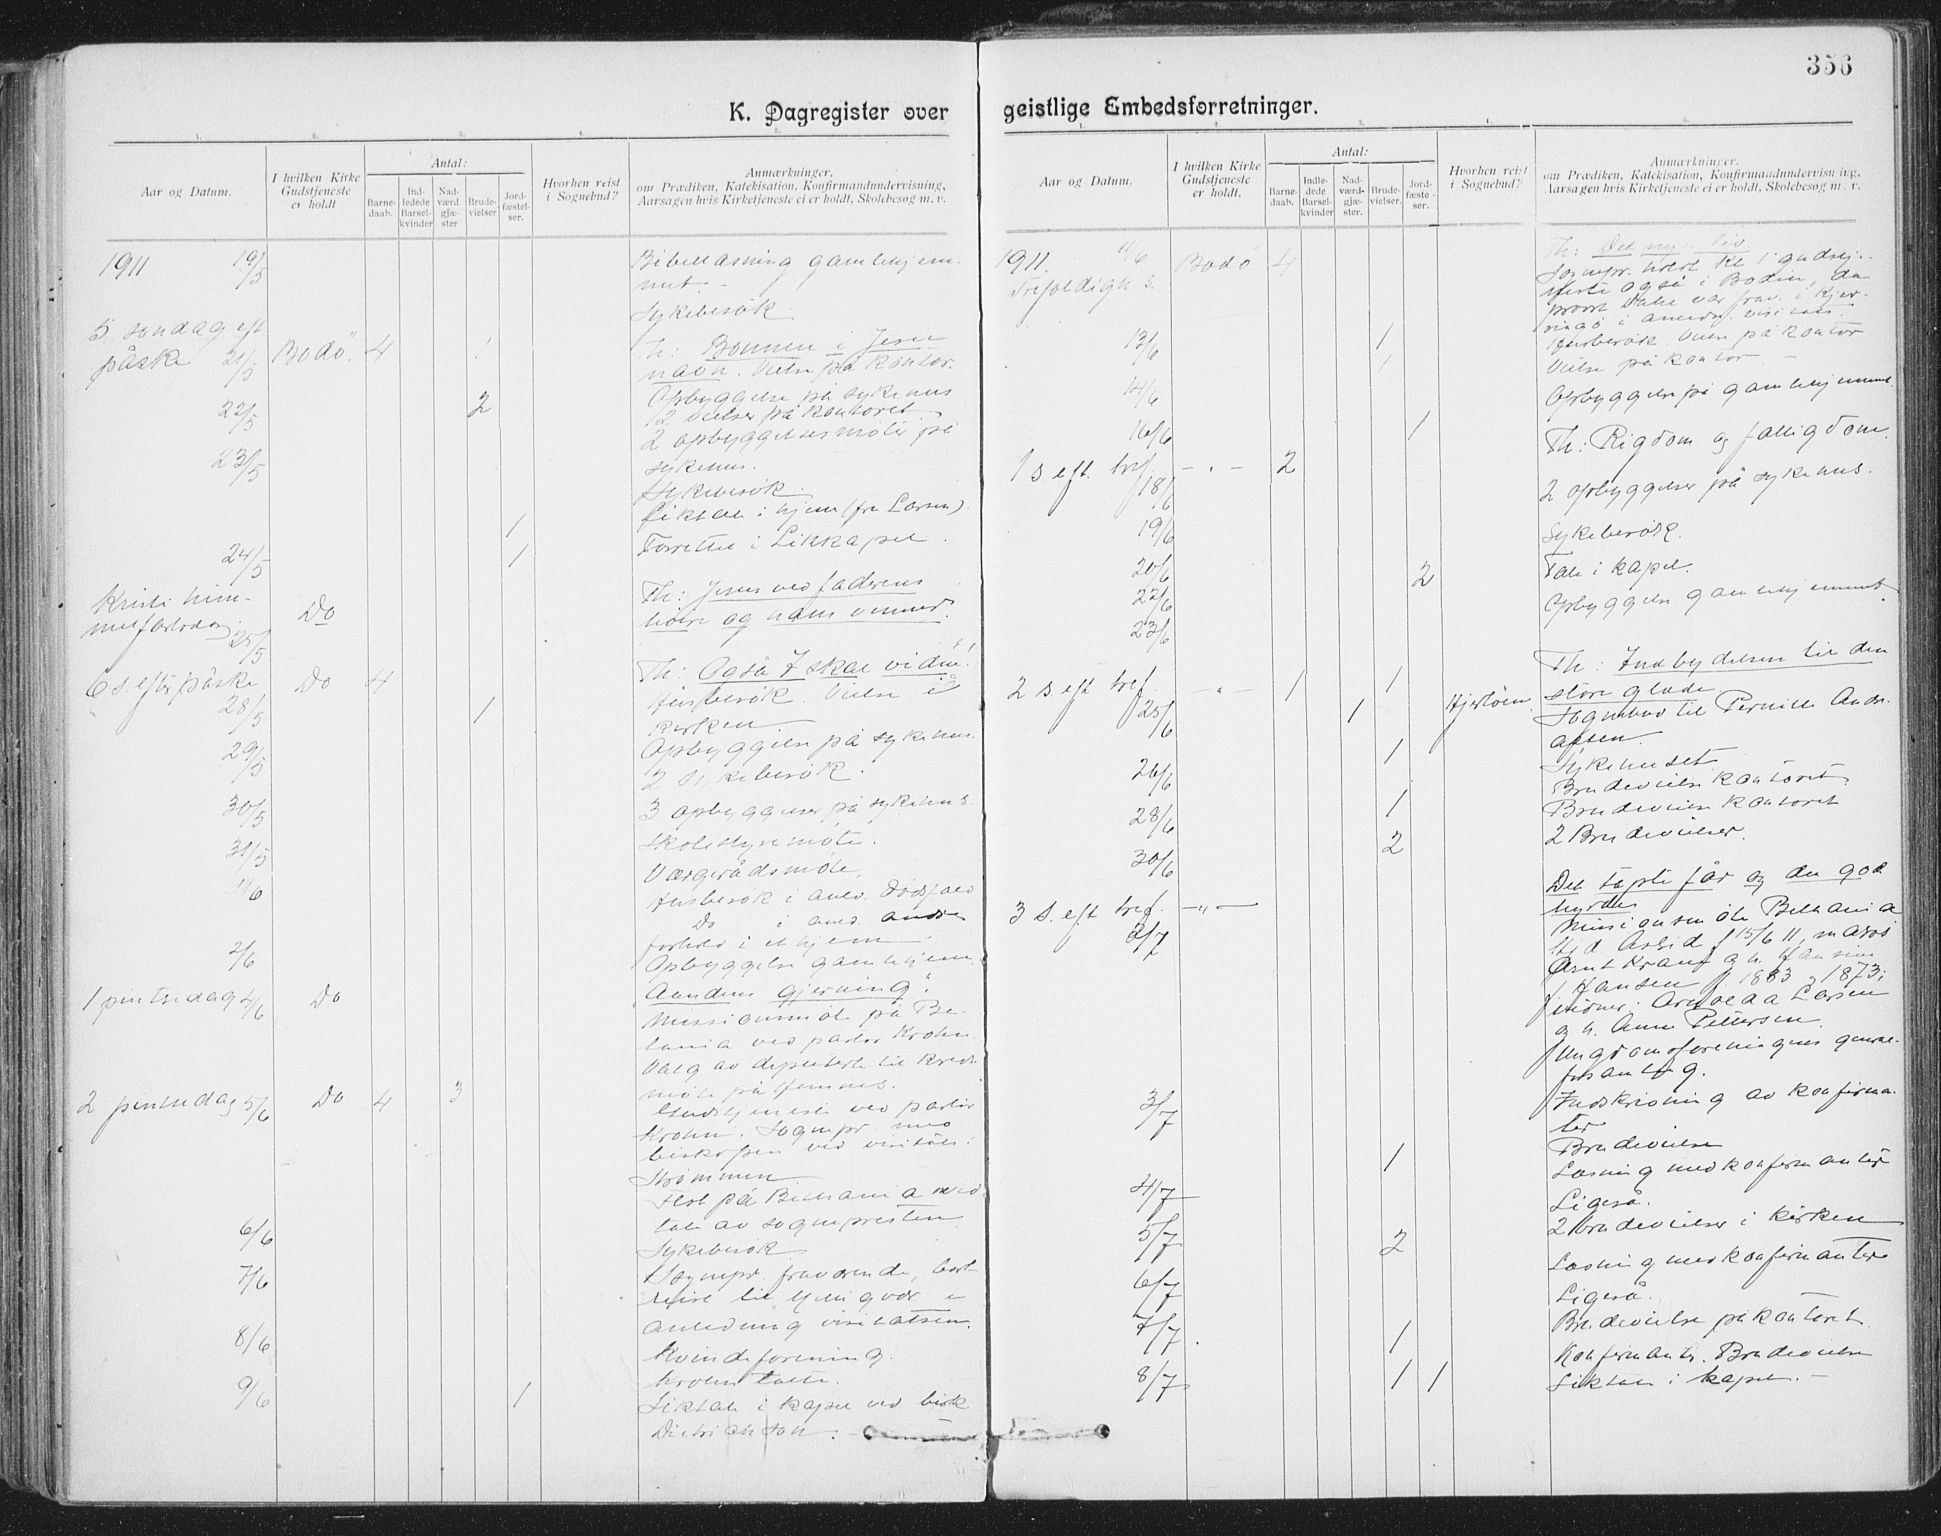 356
K. Dagregister over geistlige Embedsforretninger.
1. 2. 3. 4. 5.
Aar og Datum.
I hvilken Kirke Gudstjeneste er holdt
Antal:
Barnedaab.
Indledede Barselkvinder
Nadværdgjæster
Brudevielser
Jordfæstelser.
Hvorhen reist i Sognebud?
Anmærkninger.
om Prædiken, Katekisation, Konfirmandundervisning,
Aarsagen hvis Kirketjeneste ei er holdt, Skolebesøg m. v.
1911 19/5 Bibellæsning gamlehjem-
met. -
Sykebesök.
5 söndag eft
påske 21/5 Bodö. 4 1 Th: Bönnen i Jesu
navn. Vielse på kontor.
22/5 2 Opbyggelse på sykehus
2 vielser på kontoret
23/5 2 opbyggelsesmöter på
sykehus.
Sykebesök.
1 Liktale i hjem (fru Larsen).
24/5 1 Forrettet i Likkapel.
Kristi him-
melfartsdag 25/5 Do Th: Jesus ved faderens
höire og hans venner.
6 s. efter påske 28/5 Do 4 1 Th: Også I skal vidne!
Husbesök. Vielse i
kirken
29/5 Opbyggelse på sykehus.
2 sykebesök.
30/5 3 opbyggelser på sykehus.
Skolestyremöte.
31/5 Værgerådsmöte.
1/6 Husbesök i anl. dödsfald
Do i anl. andre
forhold i et hjem
2/6 Opbyggelse gamlehjem.
1 pintsedag 4/6 Do "Aandens gjerning".
Missionsmöte på Be-
tania ved pastor Krohn.
Valg av deputerte til kreds-
möte på Hemnes.
2 pintsedag 5/6 Do 4 3 Gudstjeneste ved pastor
Krohn. Sognepr. med
biskopen ved visitats i
Strömmen
Fest på Bethania med
tale av sognepresten
6/6 Sykebesök
7/6 Sognepr. fraværende, bort-
reist til
anledning visitatsen.
8/6 Kvindeforening.
Krohn talte.
9/6 1 Liktale i kapel ved bisk
Dietrichson. -
1. 2. 3. 4. 5.
Aar og Datum.
I hvilken Kirke Gudstjeneste er holdt.
Antal:
Barnedaab.
Indledede Barselkvinder
Nadværdgjæster.
Brudevielser.
Jordfæstelser.
Hvorhen reist i Sognebud?
Anmærkninger.
om Prædiken, Katekisation, Konfirmandundervisning,
Aarsagen hvis Kirketjeneste ei er holdt, Skolebesøg m. v.
1911 11/6 Bodö 4 Th: Det nye liv.
Trefoldigh s. Sognepr. holdt kl 1 gudstj.
også i Bodin, da
provst var frav. i Kjer-
ringö i anledn. visitats.
13/6 1 Husbesök. Vielse på kontor
1 Vielse på kontor. -
14/6 Opbyggelse på gamlehjemmet.
16/6 1
1 s eft. tref. 18/6 -"- 2 Th: Rigdom og fattigdom.
19/6 2 opbyggelser på sykehus.
20/6 Sykebesök.
22/6 2 Tale i kapel.
23/6 Opbyggelse gamlehjemmet.
2 s. eft tref. 25/6 -"- 1 1 Th: Indbydelsen til den
store glæde.
1 Hjertöen Sognebud til Pernille Andre-
asen.
26/6 1 Sykehuset
Brudevielse kontoret.
28/6 1 Brudevielse kontoret
30/6 2 2 Brudevielser.
3 s. eft tref. 2/7 -"- Det tapte får og den gode
hyrde
Missionsmöte Bethania
15/6 11,
Hansen f. 1883 1873;
Larsen
og h. Anne Pettersen.
Ungdomsforeningens general-
forsamling.
3/7 Indskrivning av konfirman-
ter
1 Brudevielse
4/7 Læsning med konfirmanter
Ligeså.
5/7 2 2 brudevielser i kirken
Læsning med konfirmanter
6/7 Ligeså.
7/7 1 Brudevielse på kontoret.
8/7 1 1 Konfirmanter. Brudevielse
Liktale i kapel. -